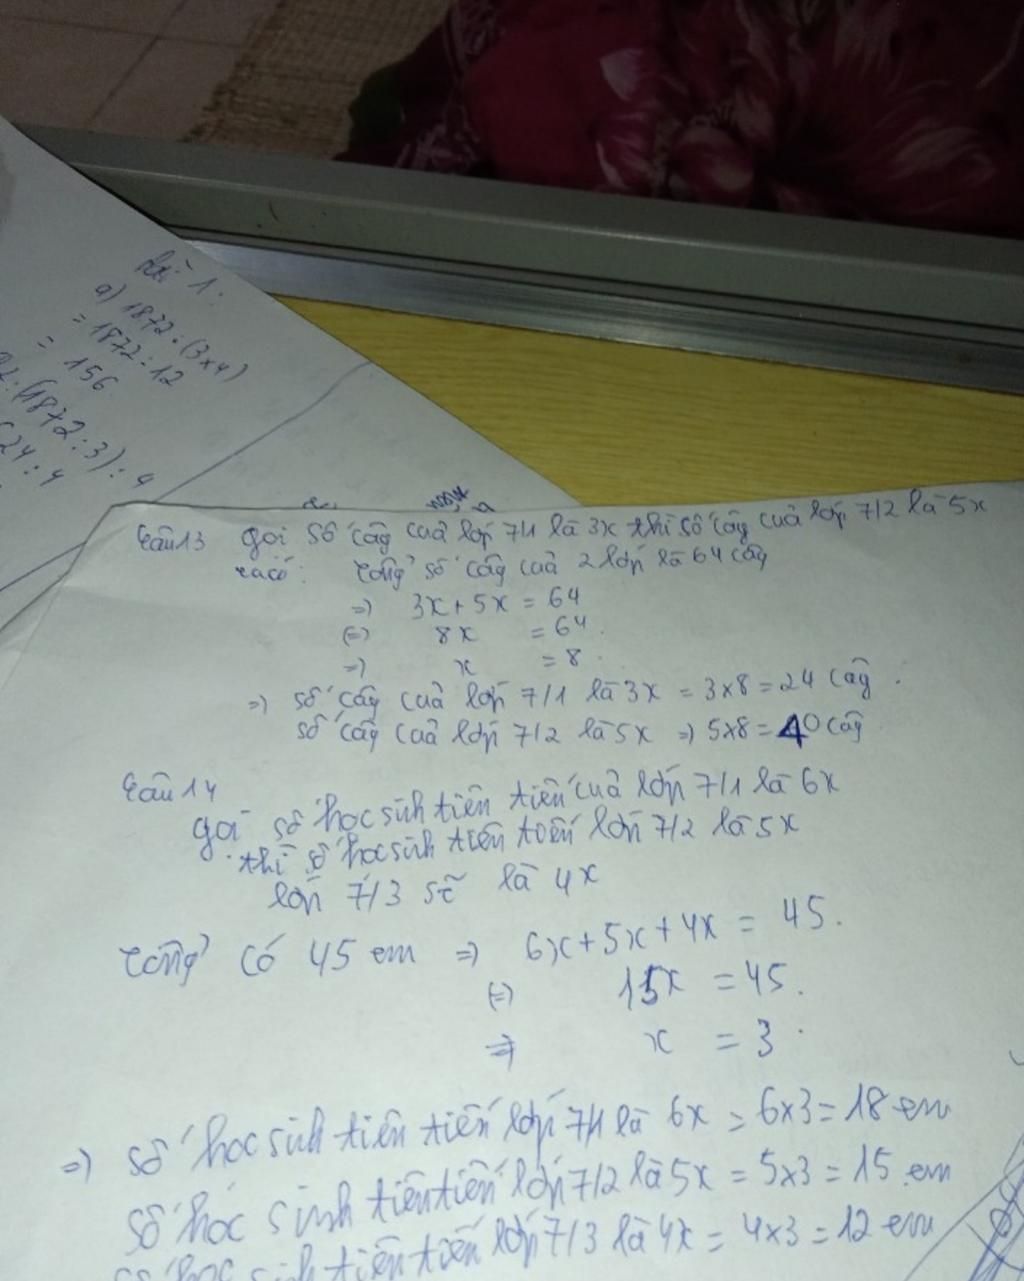 Bài 1:
a) 1872 : (3x4)
= 1872 : 12
= 156
(1872 : 3) : 4
24 : 4
Câu 13 gọi số cây của lớp 7/1 là 3x thì số cây của lớp 7/2 là 5x
ta có: tổng số cây của 2 lớp là 64 cây
=> 3x + 5x = 64
(=) 8x = 64.
=) x = 8.
=> số cây của lớp 7/1 là 3x = 3x8 = 24 cây.
số cây của lớp 7/2 là 5x => 5x8 = 40 cây
Câu 14
gọi số học sinh tiên tiến của lớp 7/1 là 6x
thì số học sinh tiên tiến lớp 7/2 là 5x
lớp 7/3 sẽ là 4x
tổng có 45 em => 6x + 5x + 4x = 45.
(=) 15x = 45.
=> x = 3.
=> số học sinh tiên tiến lớp 7/1 là 6x = 6x3 = 18 em
số học sinh tiên tiến lớp 7/2 là 5x = 5x3 = 15 em
số học sinh tiên tiến lớp 7/3 là 4x = 4x3 = 12 em